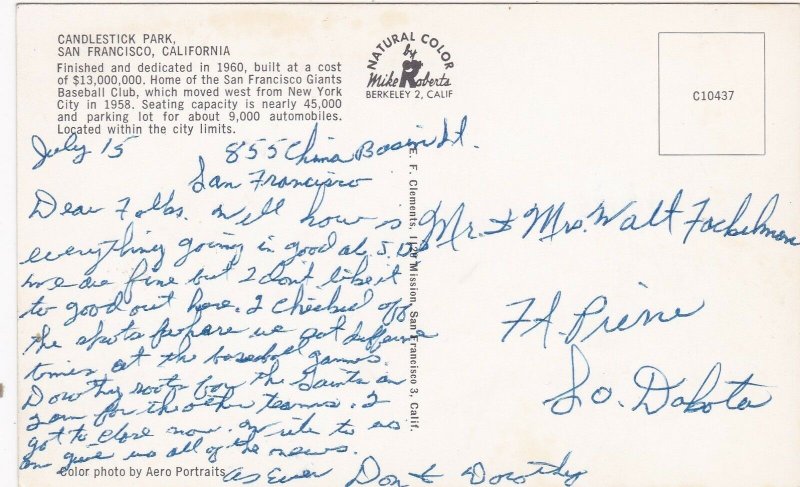 CANDLESTICK PARK,
SAN FRANCISCO, CALIFORNIA
Finished and dedicated in 1960, built at a cost
of $13,000,000. Home of the San Francisco Giants
Baseball Club, which moved west from New York
City in 1958. Seating capacity is nearly 45,000
and parking lot for about 9,000 automobiles.
Located within the city limits.
NATURAL COLOR
by
Mike Roberts
BERKELEY 2, CALIF
C10437
July 15
855 China Basin St.
San Francisco
Dear Folks. Well how is
everything going in good old S.D.
we are fine but I dont like it
to good out here. I checked off
the spots where we sat
times at the baseball games.
Dorothy roots for the Giants an
I am for the other teams. I
got to close now. Write to us
an give us all of the news.
as Ever Don & Dorothy
E. F. Clements, 1120 Mission, San Francisco 3, Calif.
Mr. & Mrs. Walt
Ft. Pierre
So. Dakota
Color photo by Aero Portraits